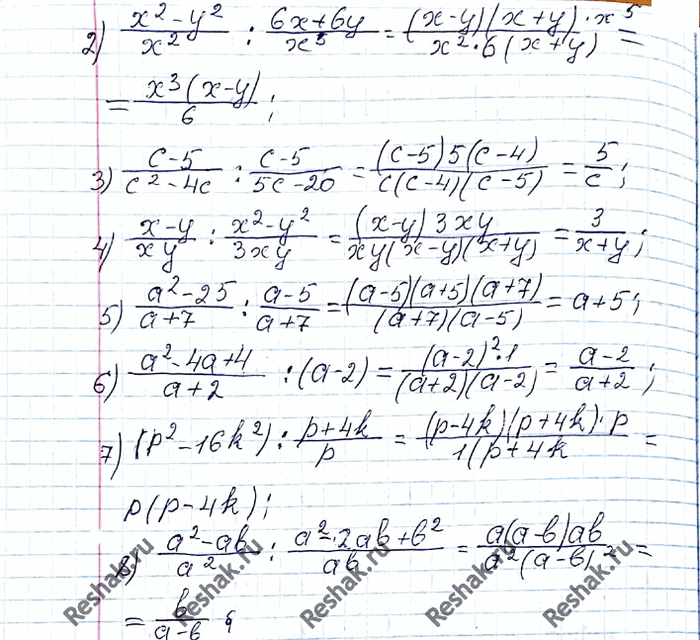 2) (x² - y²)/x² : (6x + 6y)/x⁵ = ((x-y)(x+y)·x⁵)/(x²·6(x+y)) =
= x³(x-y)/6 ;
3) (c-5)/(c² - 4c) : (c-5)/(5c-20) = ((c-5)5(c-4))/(c(c-4)(c-5)) = 5/c ;
4) (x-y)/(xy) : (x² - y²)/(3xy) = ((x-y)3xy)/(xy(x-y)(x+y)) = 3/(x+y) ;
5) (a² - 25)/(a+7) : (a-5)/(a+7) = ((a-5)(a+5)(a+7))/((a+7)(a-5)) = a+5 ;
6) (a² - 4a + 4)/(a+2) : (a-2) = ((a-2)²·1)/((a+2)(a-2)) = (a-2)/(a+2) ;
7) (p² - 16k²) : (p+4k)/p = ((p-4k)(p+4k)·p)/(1(p+4k) =
p(p-4k) ;
8) (a² - ab)/a² : (a² - 2ab + b²)/(ab) = (a(a-b)ab)/(a²(a-b)²) =
= b/(a-b) ;
Reshak.ru
Reshak.ru
Reshak.ru
Reshak.ru
Reshak.ru